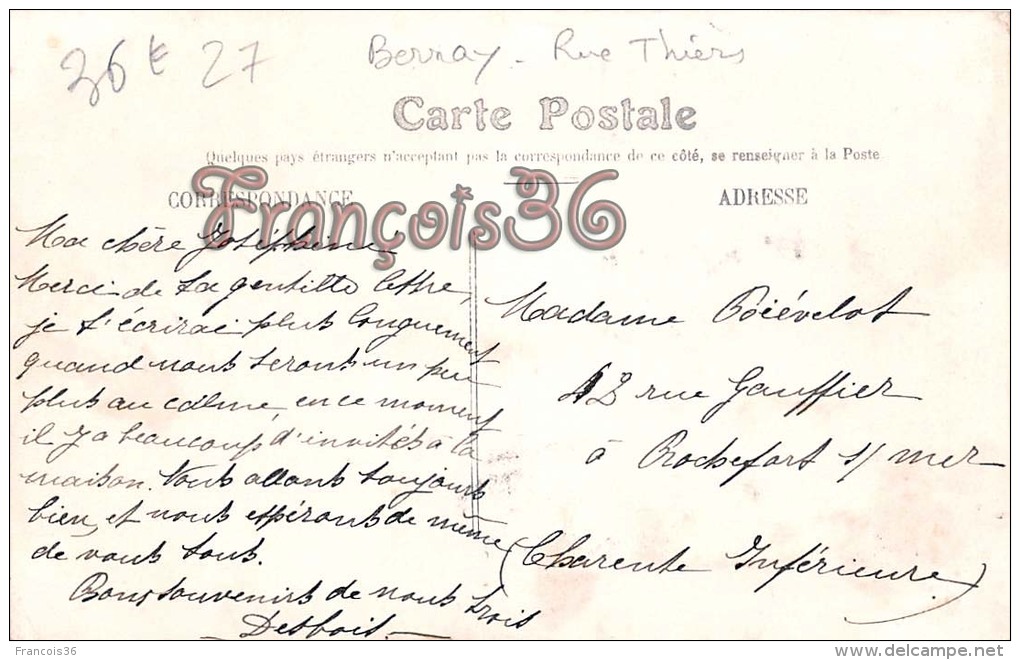 36 E 27
Bernay - Rue Thiers
Carte Postale
Quelques pays étrangers n'acceptant pas la correspondance de ce côté, se renseigner à la Poste
CORRESPONDANCE
ADRESSE
François36
Ma chère Joséphine
Merci de ta gentille lettre,
je t'écrirai plus longuement
quand nous serons un peu
plus au calme, en ce moment
il y a beaucoup d'invités à la
maison. Nous allons toujours
bien, et nous espérons de même
de vous tous.
Bons souvenirs de nous trois
Desbois
Madame Poiévelot
12 rue Gauffier
à Rochefort s/ mer
(Charente Inférieure)
François36
delcampe.net